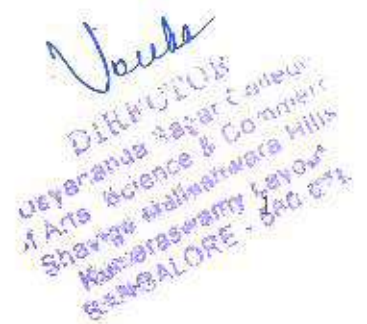 DIRECTOR
Dayananda Sagar College
of Arts Science & Commerce
Shavige Malleshwara Hills
Kumaraswamy Layout
BANGALORE - 560 078